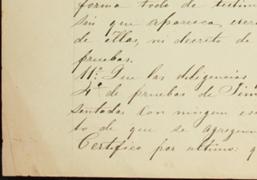 forma todo de
sin que aparezca,
de ellas, ni decreto de
pruebas.
11º. Que las diligencias
4º de pruebas de
sentadas con ningun
to de que se agreguen
Certifico por ultimo: q